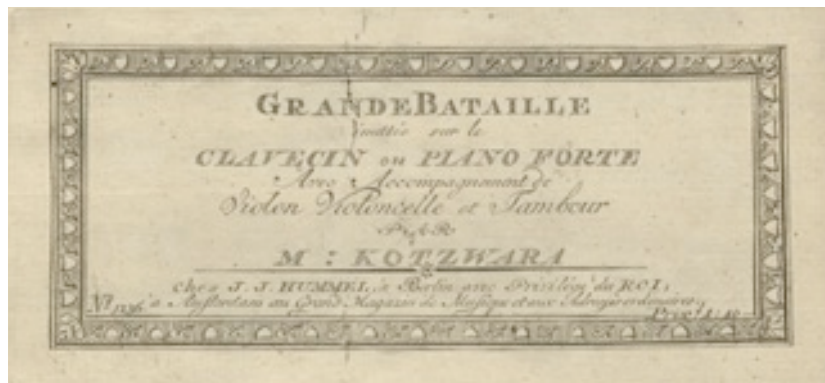 GRANDE BATAILLE
imittée sur le
CLAVECIN ou PIANO FORTE
Avec Accompagnement de
Violon Violoncelle et Tambour
PAR
M : KOTZWARA
Chez J. J. HUMMEL, à Berlin avec Privilége du ROI,
à Amsterdam au Grand Magazin de Musique et aux Adresses ordinaires,